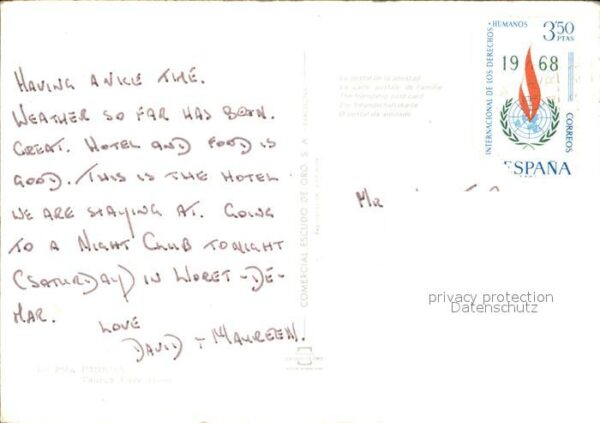 HAVING A NICE TIME.
WEATHER SO FAR HAS BEEN.
GREAT. HOTEL AND FOOD IS
GOOD. THIS IS THE HOTEL
WE ARE STAYING AT. GOING
TO A NIGHT CLUB TONIGHT
(SATURDAY) IN LLORET-DE-
MAR.
LOVE
DAVID + MAUREEN.
COMERCIAL ESCUDO DE ORO S. A.
La postal de la amistad
La carte postale de l'amitié
The friendship post card
Die Freundschaftskarte
INTERNACIONAL DE LOS DERECHOS HUMANOS
3'50
PTAS
1968
CORREOS
ESPAÑA
MR
privacy protection
Datenschutz